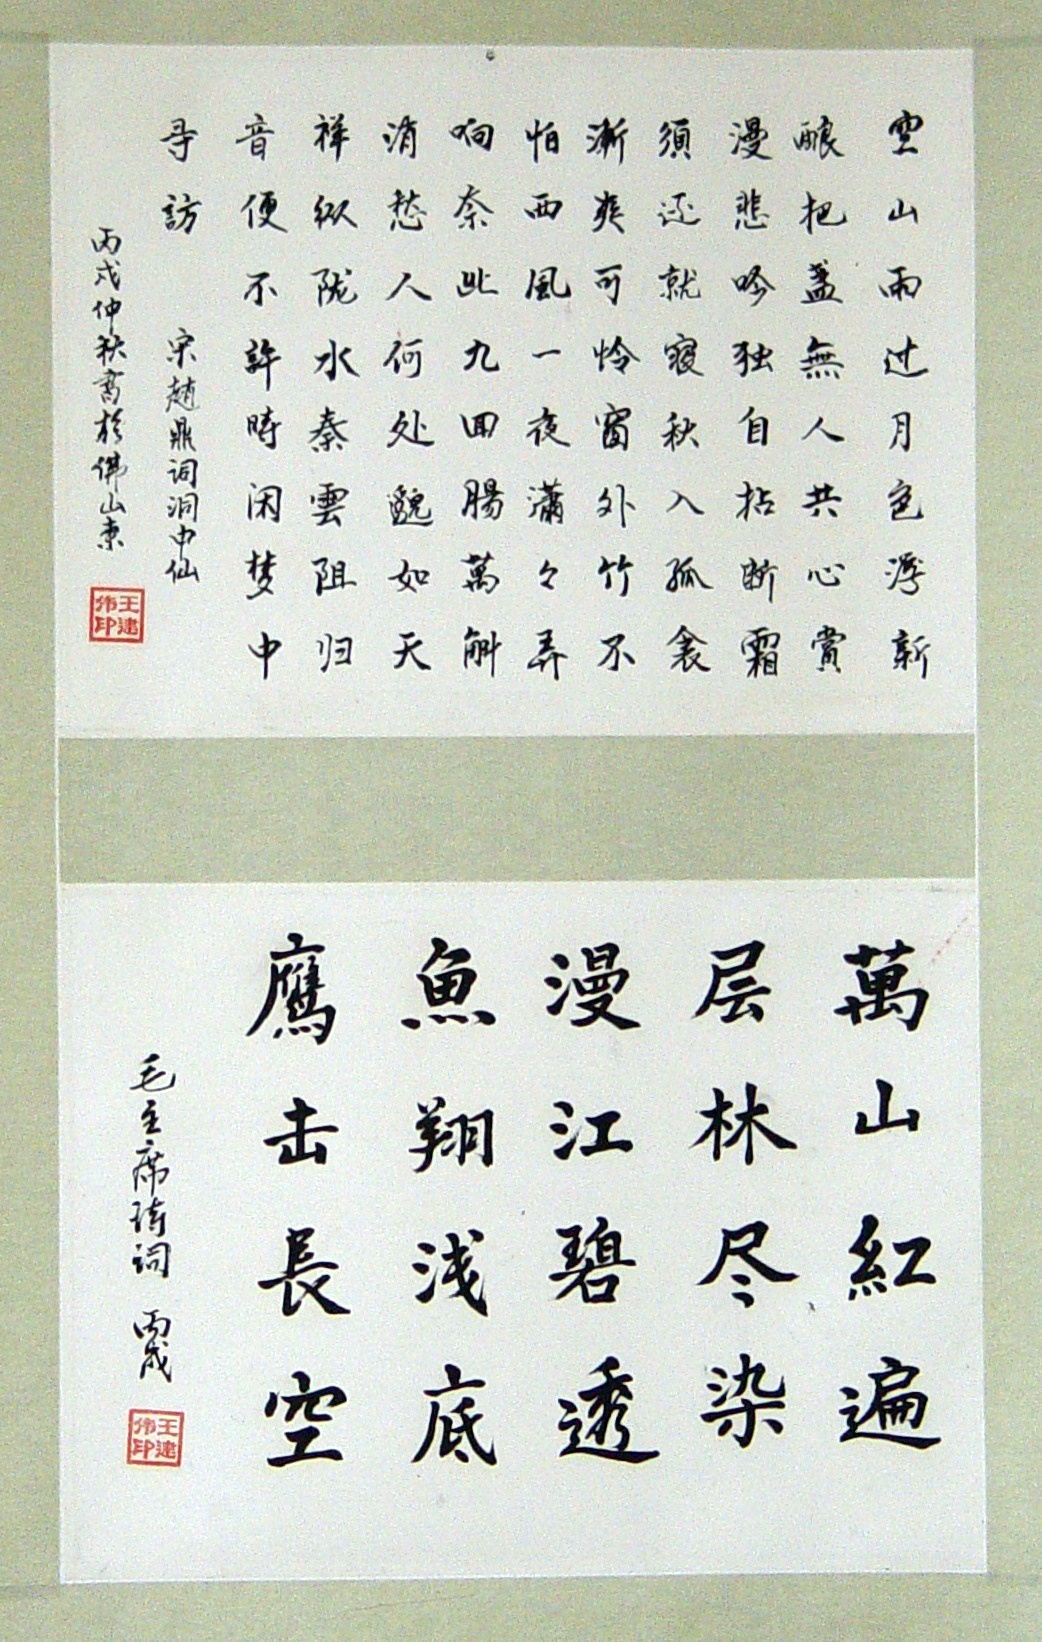 空山雨过月色浮新
酿把盏無人共心賞
漫悲吟独自拈断霜
須还就寝秋入孤衾
漸爽可怜窗外竹不
怕西風一夜瀟々弄
响奈此九回腸萬斛
消愁人何处邈如天
祥纵陇水秦雲阻归
音便不許時闲梦中
寻訪 宋趙鼎词洞中仙
丙戌仲秋書於佛山东
王建伟印
萬山紅遍
层林尽染
漫江碧透
魚翔浅底
鷹击長空
毛主席诗词 丙戌
王建伟印